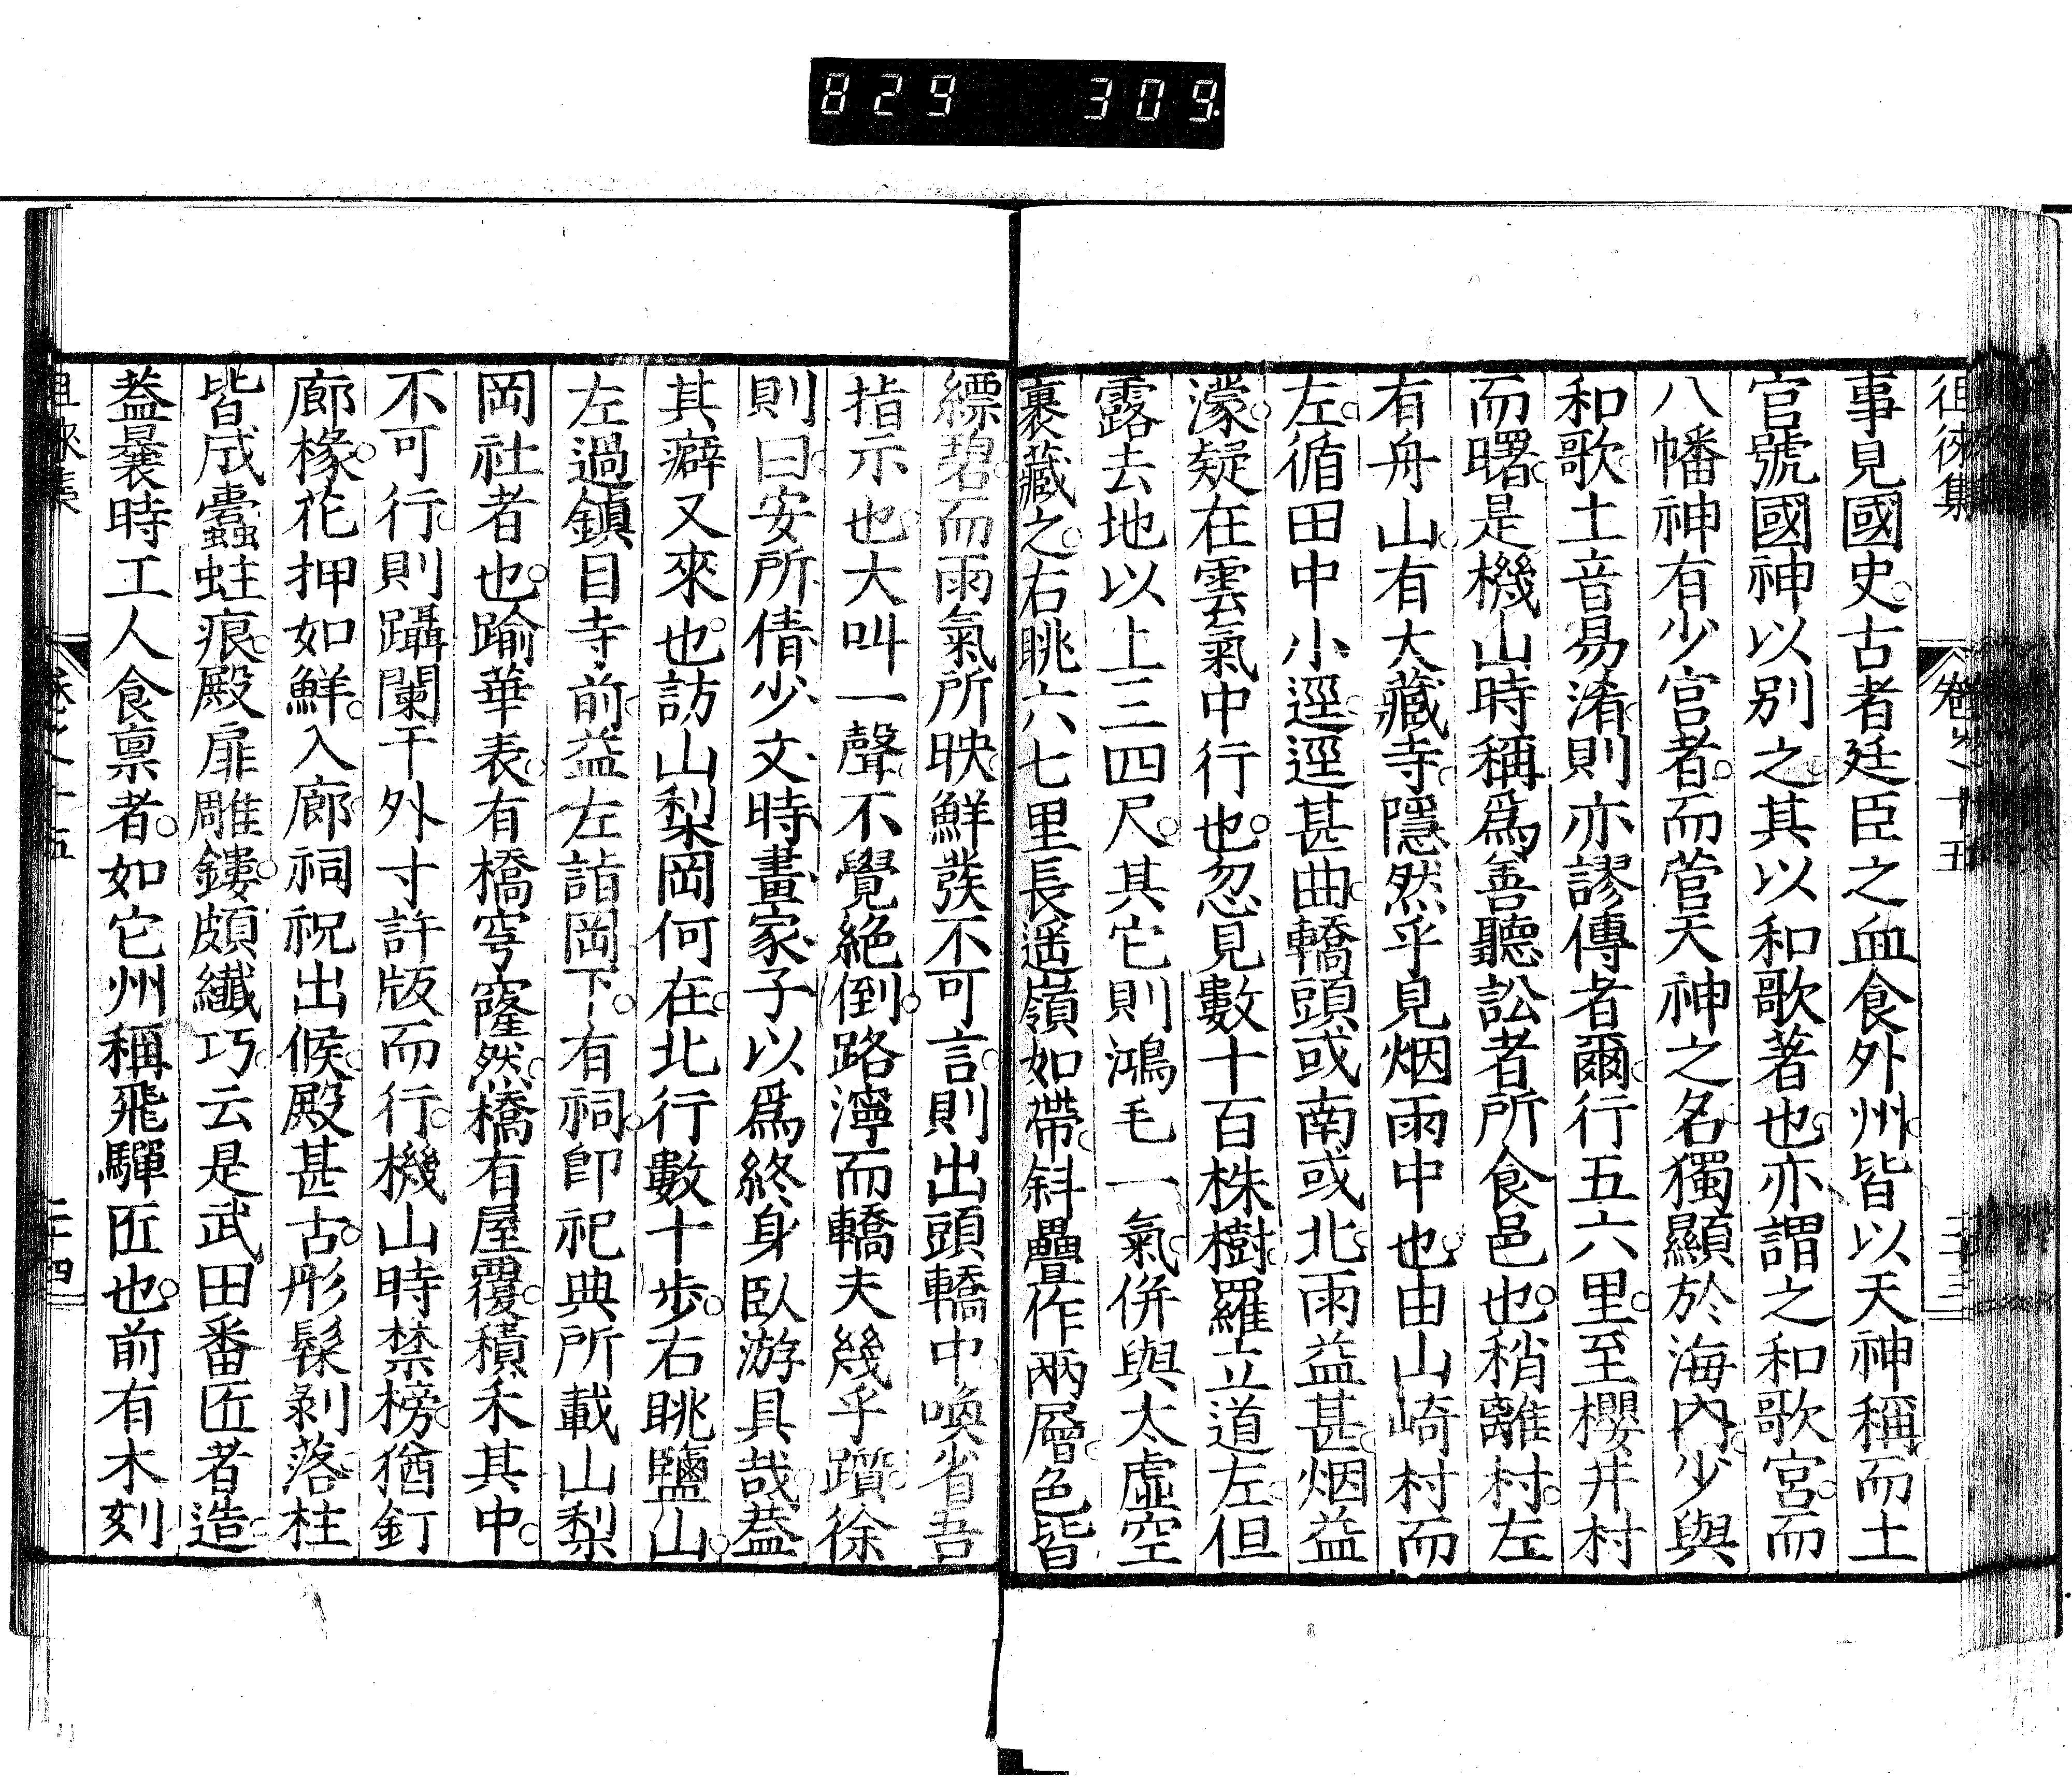 829 309
徂徠集 卷之十五 二十三
事見國史古者廷臣之血食外州皆以天神稱而土
官號國神以別之其以和歌著也亦謂之和歌宮而
八幡神有少宮者而菅天神之名獨顯於海內少與
和歌土音易淆則亦謬傳者爾行五六里至櫻井村
而曙是機山時稱爲善聽訟者所食邑也稍離村左
有舟山有大藏寺隱然乎見烟雨中也由山崎村而
左循田中小逕逕甚曲轎頭或南或北雨益甚烟益
濛疑在雲氣中行也忽見數十百株樹羅立道左但
露去地以上三四尺其它則鴻毛一氣併與太虛空
裹藏之右眺六七里長遥嶺如帶斜疊作兩層色皆
縹碧而雨氣所映鮮蕤不可言則出頭轎中喚省吾
指示也大叫一聲不覺絕倒路濘而轎夫幾乎躓徐
則曰安所倩少文時畫家子以爲終身臥游具哉葢
其癖又來也訪山梨岡何在北行數十步右眺鹽山
左過鎮目寺前益左詣岡下有祠卽祀典所載山梨
岡社者也踰華表有橋穹窿然橋有屋覆積禾其中
不可行則躡闌干外寸許版而行機山時禁榜猶釘
廊椽花押如鮮入廊祠祝出候殿甚古彤髹剝落柱
皆成蠹蛀痕殿扉雕鏤頗纖巧云是武田番匠者造
葢曩時工人食禀者如它州稱飛驒匠也前有木刻
徂徠集 卷之十五 二十四